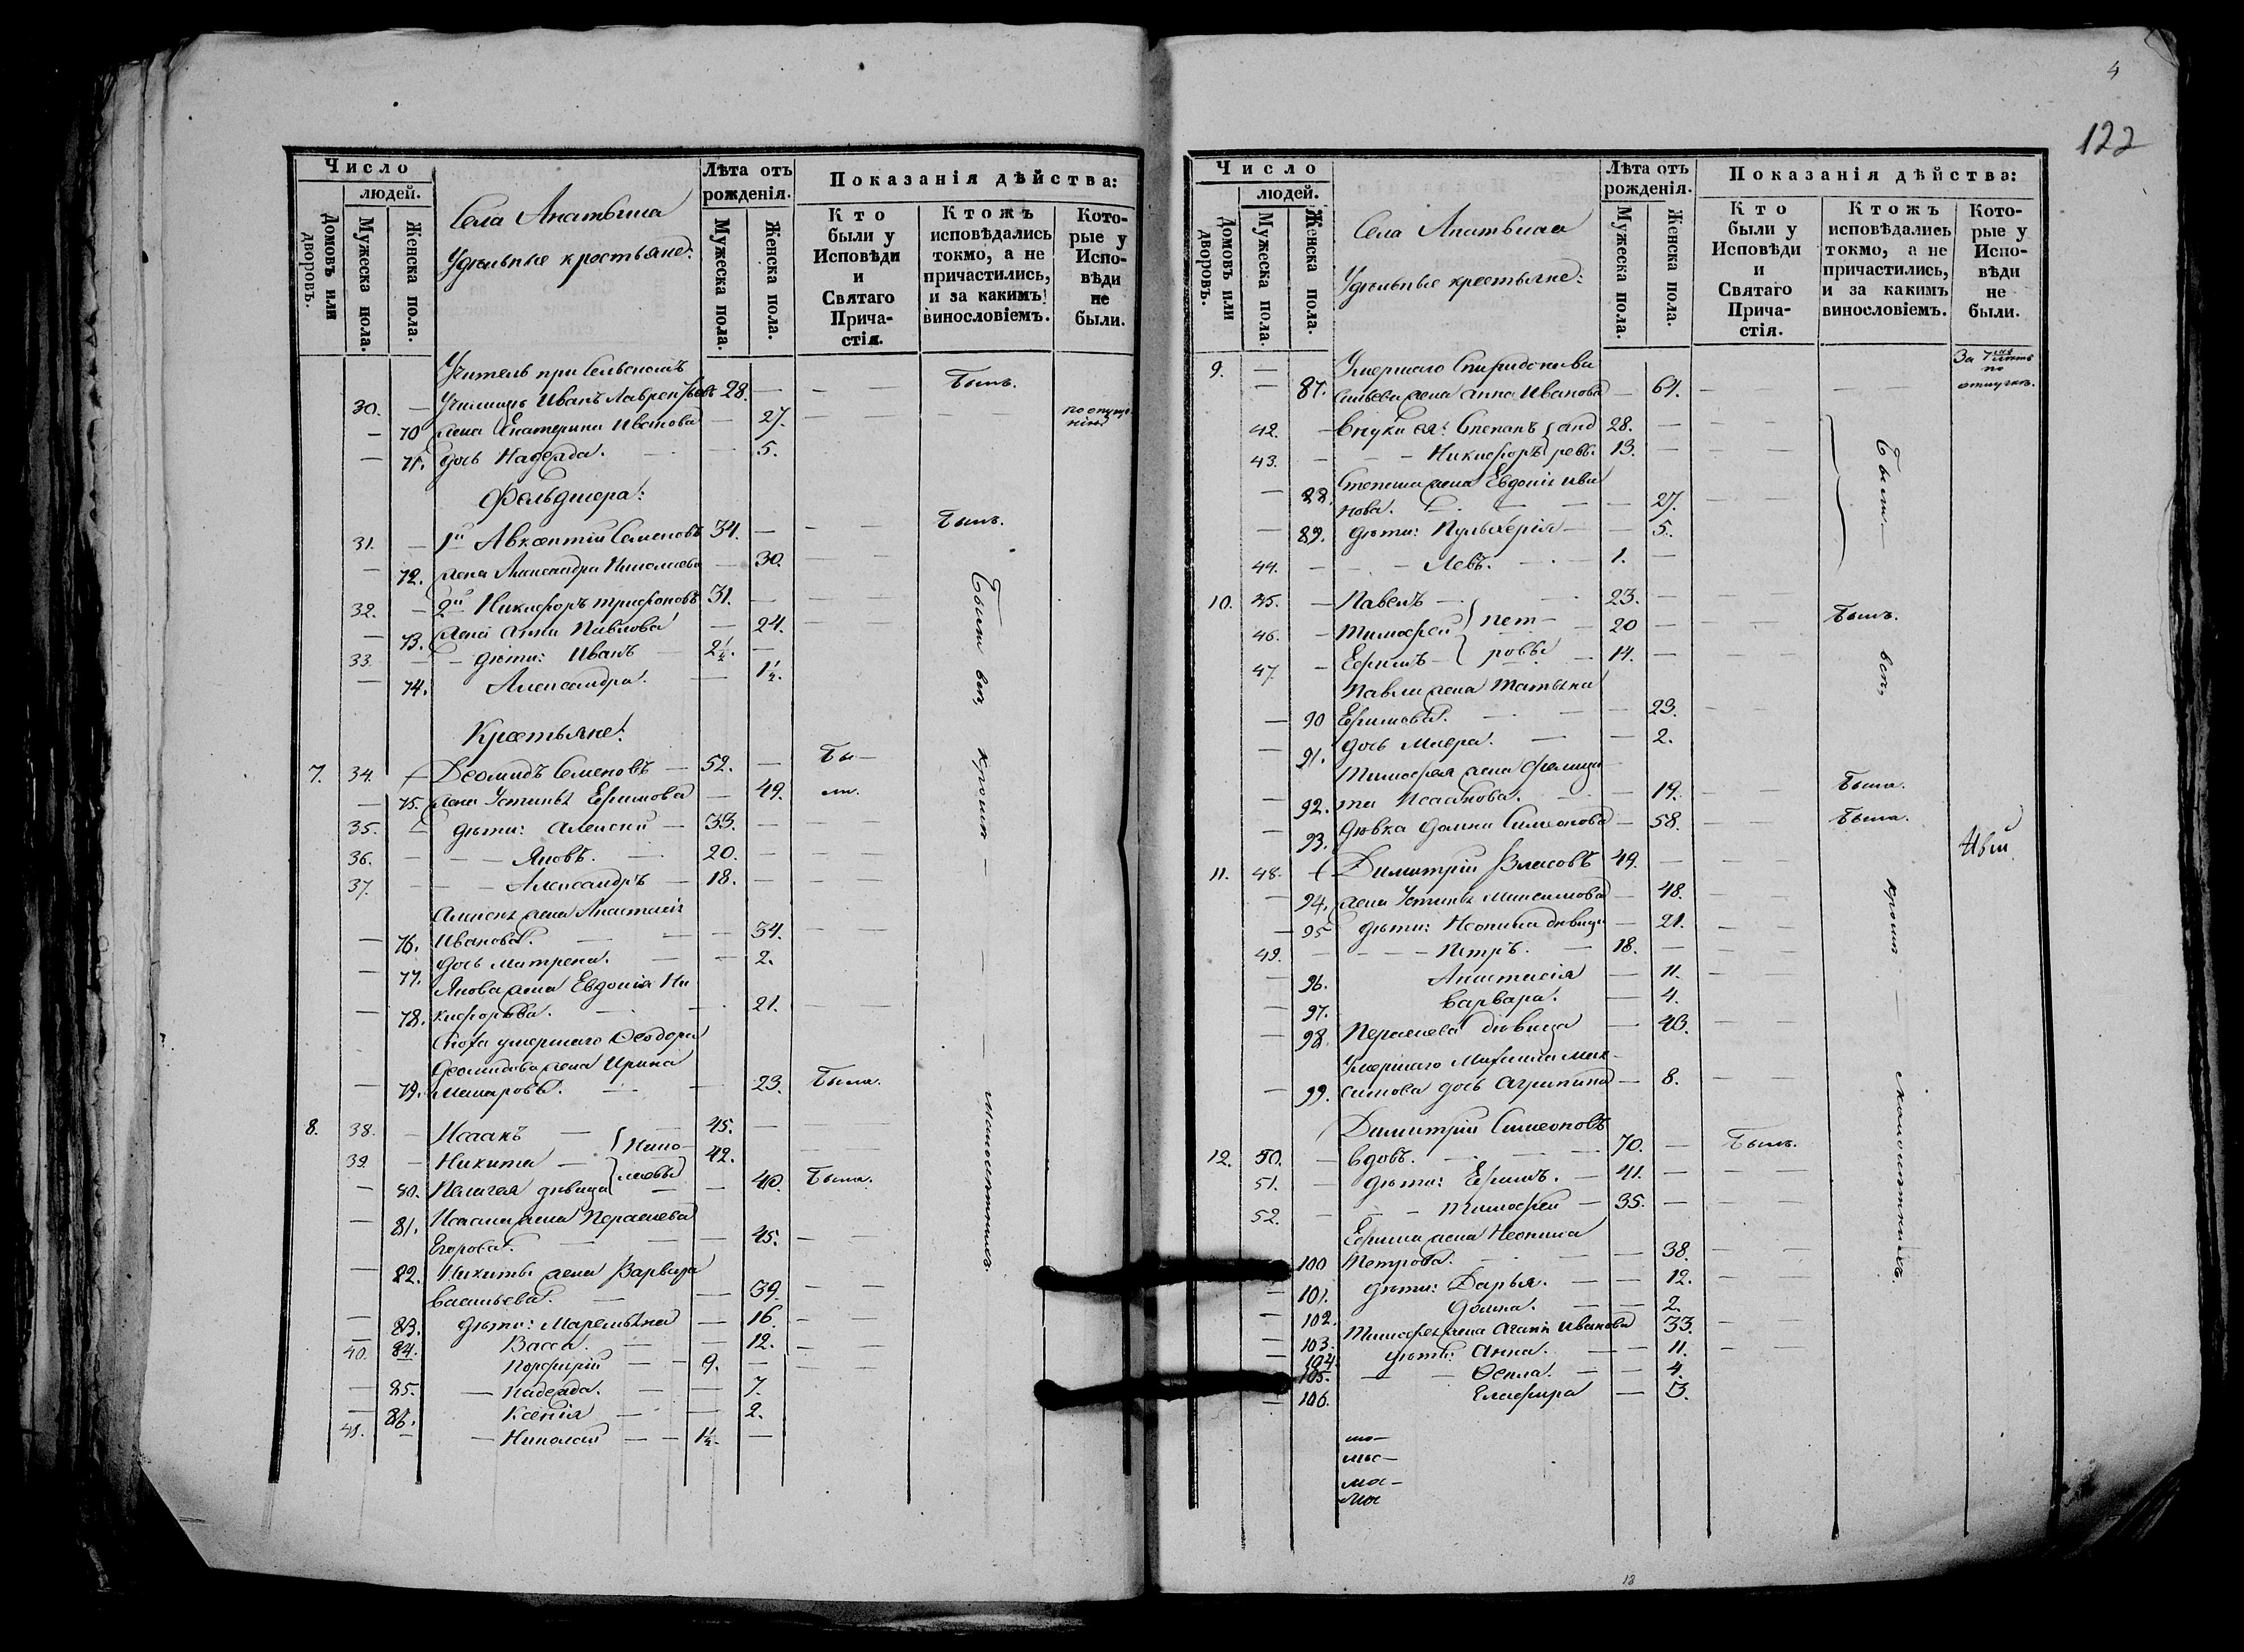 Число
людей.
Домовъ или дворовъ.
Мужеска пола.
Женска пола.
Села
Удѣльные крестьяне:
Лѣта отъ рожденія.
Мужеска пола.
Женска пола.
Показанія дѣйства:
Кто были у Исповѣди и Святаго Причастія.
Ктожъ исповѣдались токмо, а не причастились, и за какимъ винословіемъ.
Которые у Исповѣди не были.
Учитель при Сельскомъ
30. — Училищѣ Иванъ Лаврентьевъ 28. — Былъ.
— 70 жена Екатерина Иванова — 27.
— 71. дочь Надежда. — 5.
Фельдшера:
31. — 1й Авксентій Семеновъ 34. — Былъ.
— 72. жена Александра Николаева — 30.
32. — 2й Никифоръ Трифоновъ 31. —
— 73. жена Анна Павлова — 24.
33. — дѣти: Иванъ 2½. —
— 74. Александра. — 1½.
Были всѣ, кромѣ — малолѣтнихъ.
Крестьяне:
7. 34. Деомидъ Семеновъ — 52. — Бы—
— 75. жена Устинья Ефимова — 49. ли.
35. — дѣти: Алексѣй — 33. —
36. — Яковъ. — 20. —
37. — Александръ — 18. —
Алексѣя жена Анастасія
— 76. Иванова. — 34.
— 77. дочь Матрена. — 2.
Якова жена Евдокія Ни
— 78. кифорова. — 21.
Сноха умершаго Ѳеодора
Деомидова жена Ирина
— 79. Макарова. — 23. Была.
8. 38. — Исаакъ — 45.
39. — Никита — Нико- 42.
— 80. Пелагея дѣвица лаевы — 40. Была.
— 81. Исаака жена Парасковья
Егорова. — 45.
— 82. Никиты жена Варвара
Васильева. — 39.
— 83. дѣти: Маремьяна — 16.
— 84. Васса. — 12.
40. Порфирій — 9. —
— 85. — Надежда. — 7.
— 86. Ксенія — 2.
41. — Николай — 1½. —
4
122
Число
людей.
Домовъ или дворовъ.
Мужеска пола.
Женска пола.
Села
Удѣльные крестьяне:
Лѣта отъ рожденія.
Мужеска пола.
Женска пола.
Показанія дѣйства:
Кто были у Исповѣди и Святаго Причастія.
Ктожъ исповѣдались токмо, а не причастились, и за какимъ винословіемъ.
Которые у Исповѣди не были.
9. — Умершаго Спиридона Ва
— 87. сильева жена Анна Иванова — 64.
42. — Внуки ея: Степанъ 28. —
43. — Никифоръ 13. —
Степана жена Евдокія Ива
— 88. нова. — 27.
— 89. дѣти: Пульхерія — 5.
44. — Левъ. — 1. —
Были
10. 45. — Павелъ — 23. —
46. — Тимофей Пет- 20 — Былъ.
47. — Ефимъ — ровы 14. —
Павла жена Татьяна
— 90 Ефимова. — 23.
— 91. дочь Мавра. — 2.
Тимофея жена
— 92. Исаакова. — 19. Была.
— 93. дѣвка Домна Симеонова — 58. Была.
11. 48. Димитрій Власовъ 49. —
— 94. жена Устинья Максимова — 48.
— 95 дѣти: Неонила дѣвица — 21.
49. — Петръ. — 18. —
— 96. Анастасія — 11.
— 97. Варвара. — 4.
— 98. дѣвица — 43.
Умершаго Михаила Мак-
— 99. симова дочь Агрипина — 8.
Димитрій Симеоновъ
12. 50. — вдовъ. — 70. — Былъ.
51. — дѣти: Ефимъ. — 41. —
52. — Тимофей — 35. —
Ефима жена Неонила
— 100 Петрова. — 38.
— 101. дѣти: Дарья. — 12.
— 102. Домна. — 2.
— 103. Тимофея жена Агафія Иванова 33.
— 104. дѣти: Анна. — 11.
— 105. — Ѳекла. — 4.
— 106. Глафира — 3.
всѣ, кромѣ — малолѣтнихъ.
13